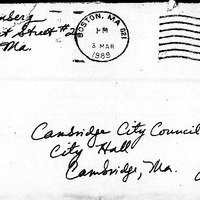 t Street #2
Ma.
BOSTON, MA 021
PM
3 MAR
1989
Cambridge City Council
City Hall
Cambridge, Ma.